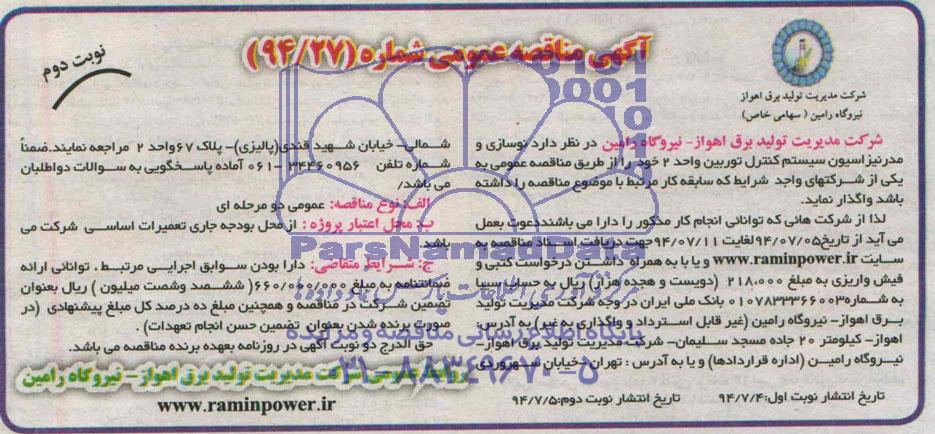 آگهی مناقصه عمومی شماره (۹۴/۲۷)
نوبت دوم
شرکت مدیریت تولید برق اهواز
نیروگاه رامین (سهامی خاص)
شرکت مدیریت تولید برق اهواز- نیروگاه رامین در نظر دارد نوسازی و
مدرنیزاسیون سیستم کنترل توربین واحد ۲ خود را از طریق مناقصه عمومی به
یکی از شرکتهای واجد شرایط که سابقه کار مرتبط با موضوع مناقصه را داشته
باشد واگذار نماید.
لذا از شرکت هائی که توانائی انجام کار مذکور را دارا می باشند دعوت بعمل
می آید از تاریخ ۹۴/۰۷/۰۵ لغایت ۹۴/۰۷/۱۱ جهت دریافت اسناد مناقصه به
سایت www.raminpower.ir و یا با به همراه داشتن درخواست کتبی و
فیش واریزی به مبلغ ۲۱۸.۰۰۰ (دویست و هجده هزار) ریال به حساب سیبا
به شماره ۰۱۰۷۸۳۳۳۶۶۰۰۳ بانک ملی ایران در وجه شرکت مدیریت تولید
برق اهواز- نیروگاه رامین (غیر قابل استرداد و واگذاری به غیر) به آدرس:
اهواز- کیلومتر ۲۰ جاده مسجد سلیمان- شرکت مدیریت تولید برق اهواز-
نیروگاه رامین (اداره قراردادها) و یا به آدرس : تهران- خیابان سهروردی
شمالی- خیابان شهید قندی(پالیزی)- پلاک ۶۷ واحد ۲ مراجعه نمایند.ضمناً
شماره تلفن ۳۴۴۶۰۹۵۶ -۰۶۱ آماده پاسخگویی به سوالات دواطلبان
می باشد/
الف: نوع مناقصه: عمومی دو مرحله ای
ب: محل اعتبار پروژه : از محل بودجه جاری تعمیرات اساسی شرکت می
باشد.
ج: شرایط متقاضی: دارا بودن سوابق اجرایی مرتبط ، توانائی ارائه
ضمانتنامه به مبلغ ۶۶۰/۰۰۰/۰۰۰ (ششصد وشصت میلیون ) ریال بعنوان
تضمین شرکت در مناقصه و همچنین مبلغ ده درصد کل مبلغ پیشنهادی (در
صورت برنده شدن بعنوان تضمین حسن انجام تعهدات) .
حق الدرج دو نوبت آگهی در روزنامه بعهده برنده مناقصه می باشد.
روابط عمومی شرکت مدیریت تولید برق اهواز- نیروگاه رامین
www.raminpower.ir
تاریخ انتشار نوبت اول: ۹۴/۷/۴ تاریخ انتشار نوبت دوم: ۹۴/۷/۵
ParsNamadData
پایگاه اطلاع رسانی مناقصه و مزایده
۰۲۱-۸۸۳۴۹۶۷۰-۵